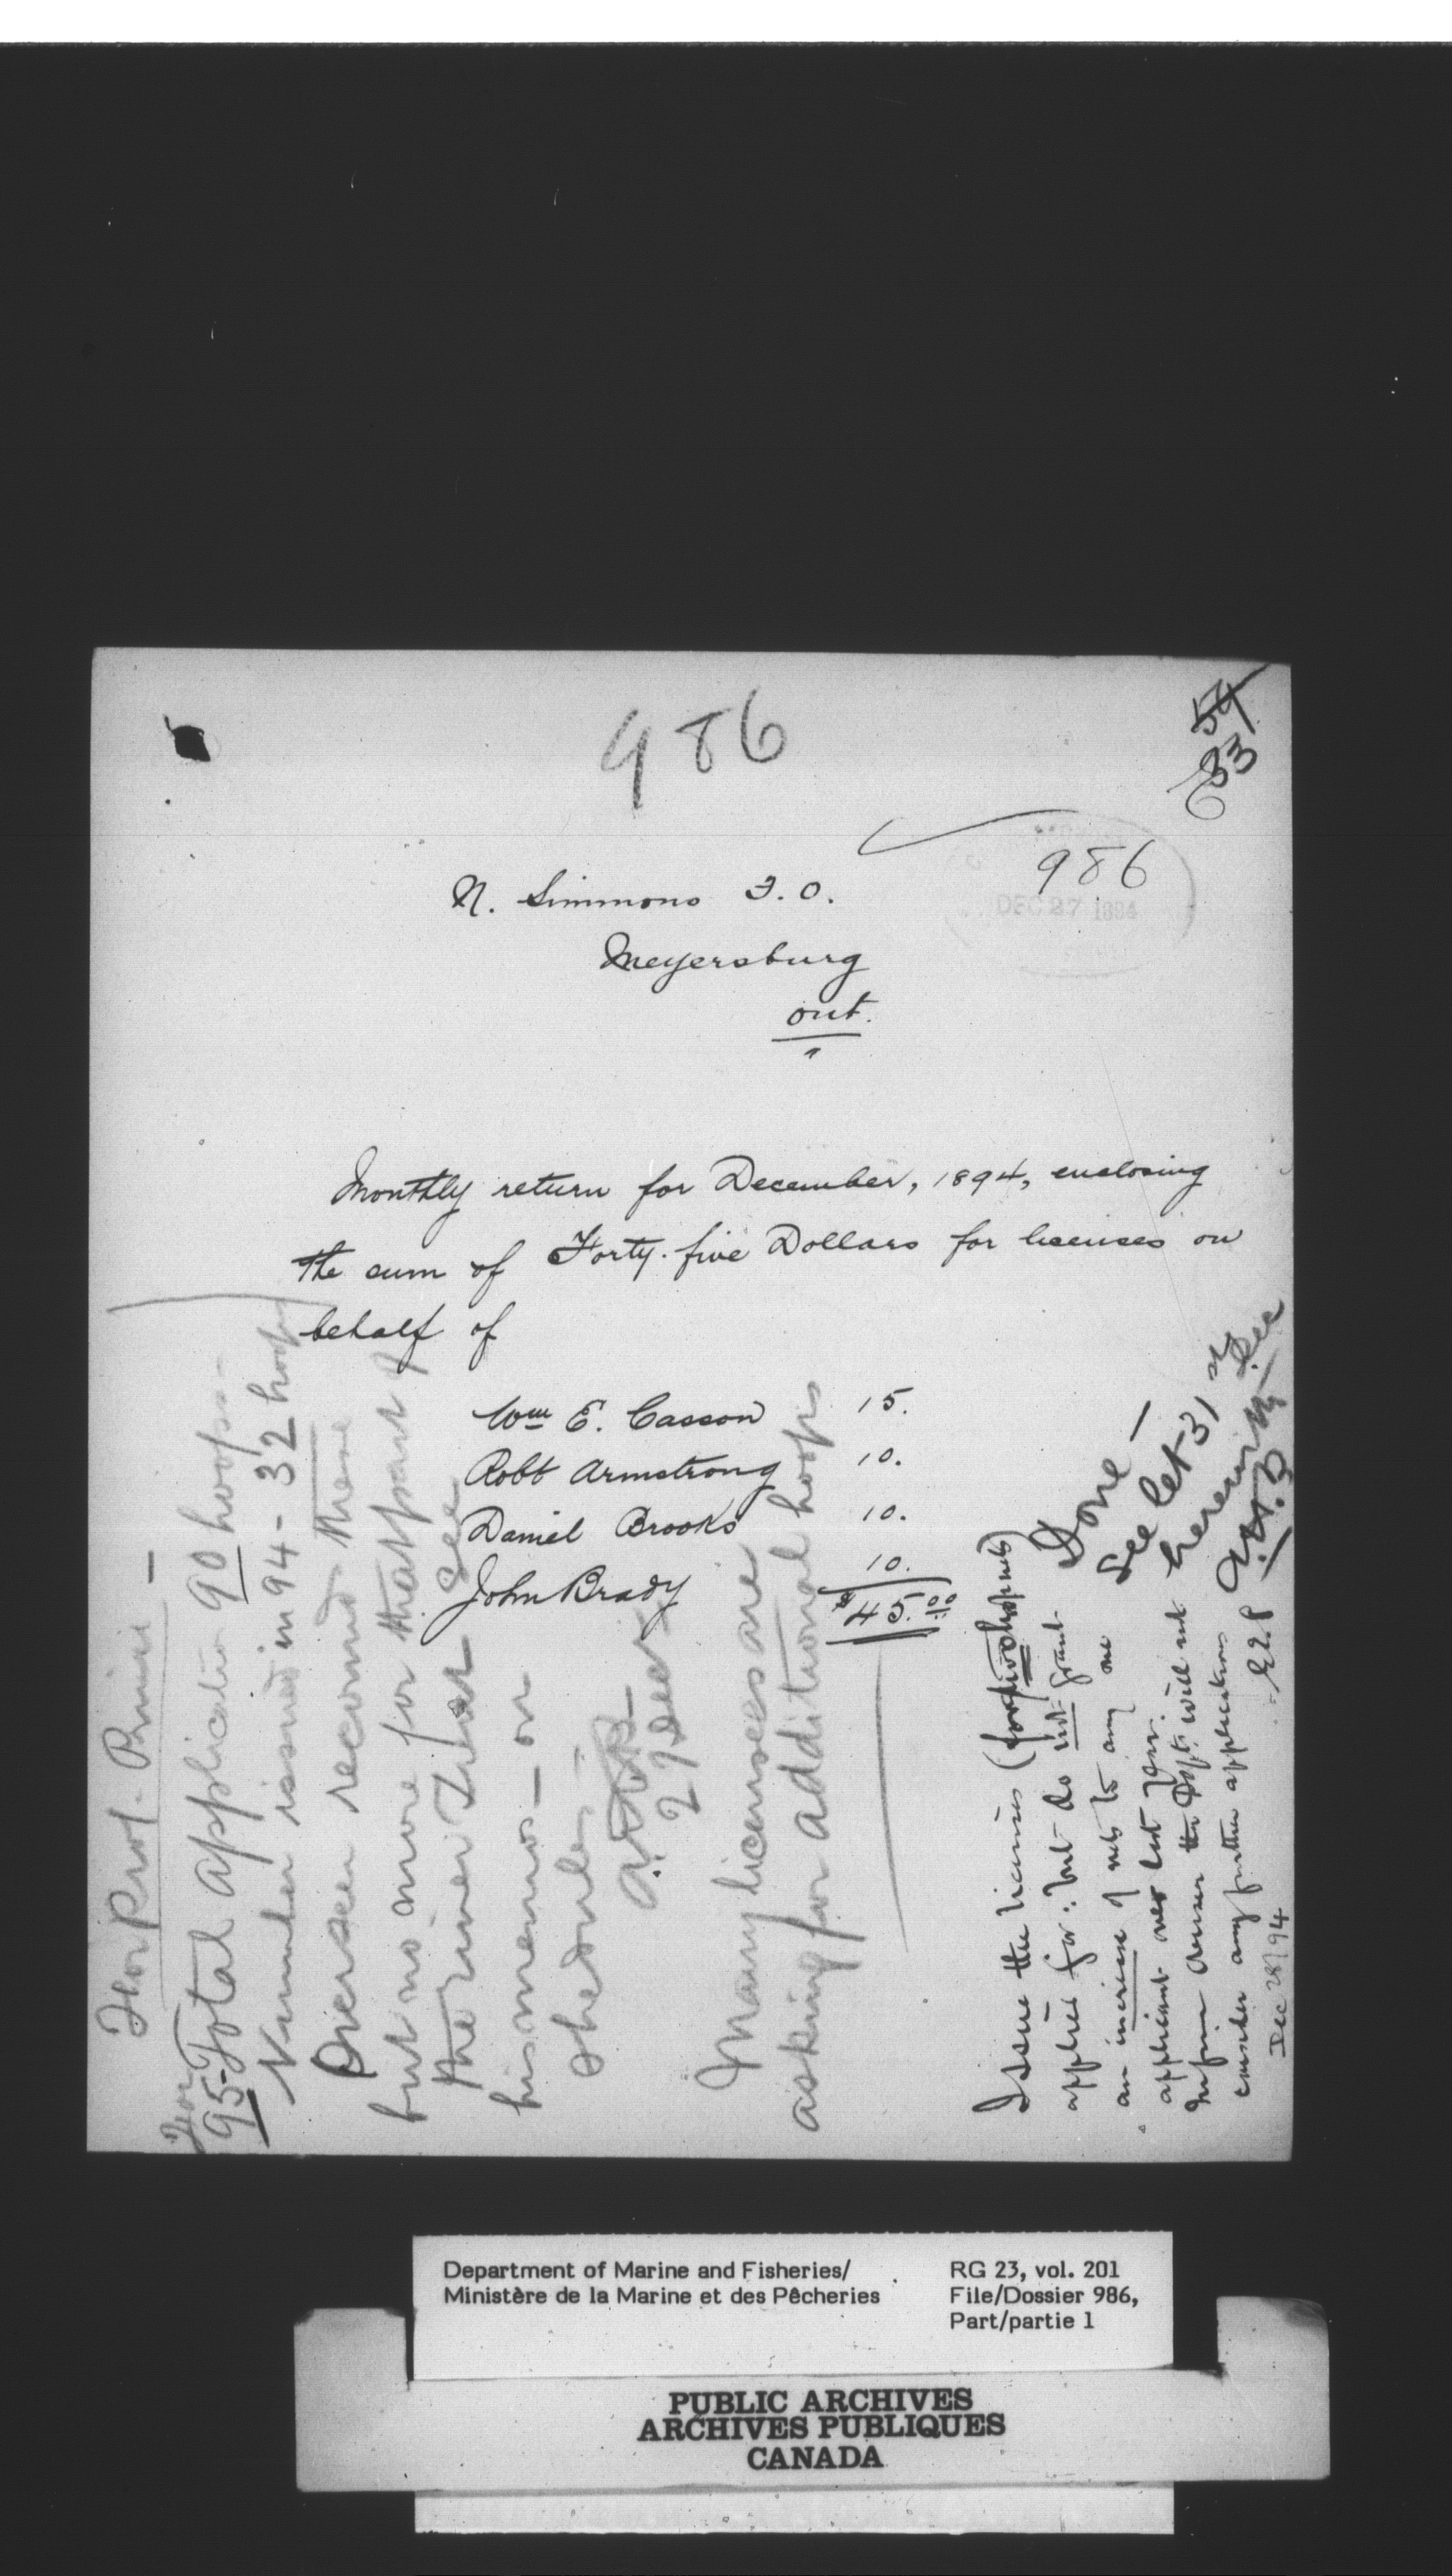 986
54
83
986
DEC 27 1894
N. Simmons F.O.
Meyersburg
Ont.
Monthly return for December, 1894, enclosing
the sum of Forty-five Dollars for licenses on
behalf of
Wm E. Casson 15.
Robt Armstrong 10.
Daniel Brooks 10.
John Brady 10.
$45.00
For Prof. Prince
For 95 - Total application 90 hoops
Number issued in 94 - 32 hoops
Overseer recommends these
but no more for that part of
the river Trent see
his memo - on
schedules -
27 Dec
Many licensees are
asking for additional hoops
Issue the licenses (for hoopnets)
applied for: but do not grant
an increase of nets to any one
applicant over last year.
Inform Overseer the Dept. will not
consider any further applications
E.E.P
Dec 28/94
Done -
See let 31st Dec
herewith
Department of Marine and Fisheries/
Ministère de la Marine et des Pêcheries
RG 23, vol. 201
File/Dossier 986,
Part/partie 1
PUBLIC ARCHIVES
ARCHIVES PUBLIQUES
CANADA